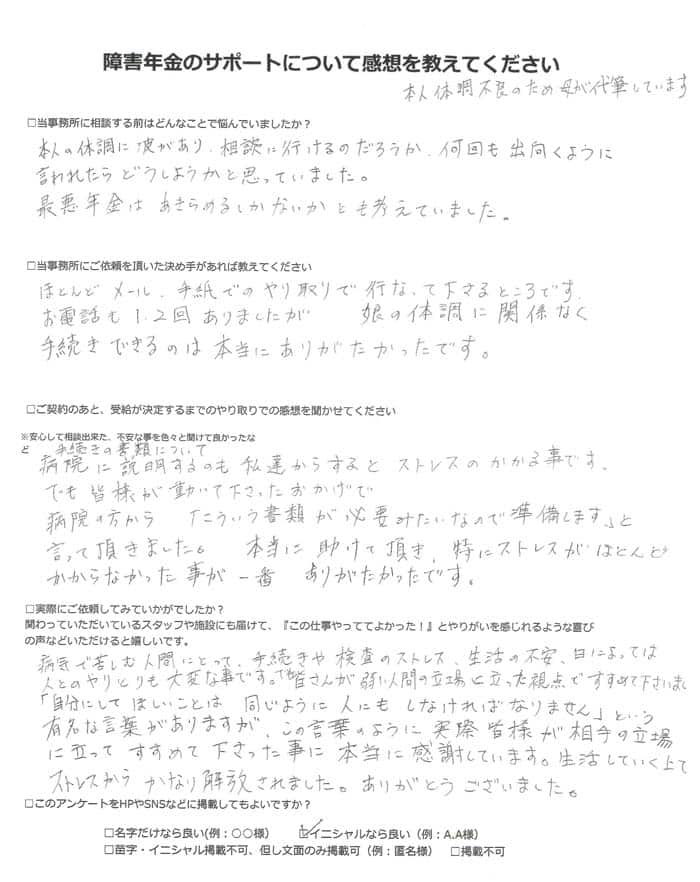 障害年金のサポートについて感想を教えてください
本人体調不良のため母が代筆しています
□当事務所に相談する前はどんなことで悩んでいましたか？
本人の体調に波があり、相談に行けるのだろうか、何回も出向くように
言われたらどうしようかと思っていました。
最悪年金はあきらめるしかないかとも考えていました。
□当事務所にご依頼を頂いた決め手があれば教えてください
ほとんどメール、手紙でのやり取りで行なって下さるところです。
お電話も1.2回ありましたが 娘の体調に関係なく
手続きできるのは本当にありがたかったです。
□ご契約のあと、受給が決定するまでのやり取りでの感想を聞かせてください
※安心して相談出来た、不安な事を色々と聞けて良かったな
ど 手続きの書類について
病院に説明するのも私達からするとストレスのかかる事です。
でも皆様が動いて下さったおかげで
病院の方から 「こういう書類が必要みたいなので準備します。」と
言って頂きました。 本当に助けて頂き、特にストレスがほとんど
かからなかった事が一番 ありがたかったです。
□実際にご依頼してみていかがでしたか？
関わっていただいているスタッフや施設にも届けて、『この仕事やっててよかった！』とやりがいを感じれるような喜び
の声などいただけると嬉しいです。
病気で苦しむ人間にとって、手続きや検査のストレス、生活の不安、日によっては
人とのやりとりも大変な事です。でも皆さんが弱い人間の立場に立った視点ですすめて下さいまし
「自分にしてほしいことは 同じように人にもしなければなりません」という
有名な言葉がありますが、この言葉のように実際皆様が相手の立場
に立ってすすめて下さった事に本当に感謝しています。生活していく上で
ストレスからかなり解放されました。ありがとうございました。
□このアンケートをHPやSNSなどに掲載してもよいですか？
□名字だけなら良い(例：○○様) ☑イニシャルなら良い（例：A.A様）
□苗字・イニシャル掲載不可、但し文面のみ掲載可（例：匿名様） □掲載不可